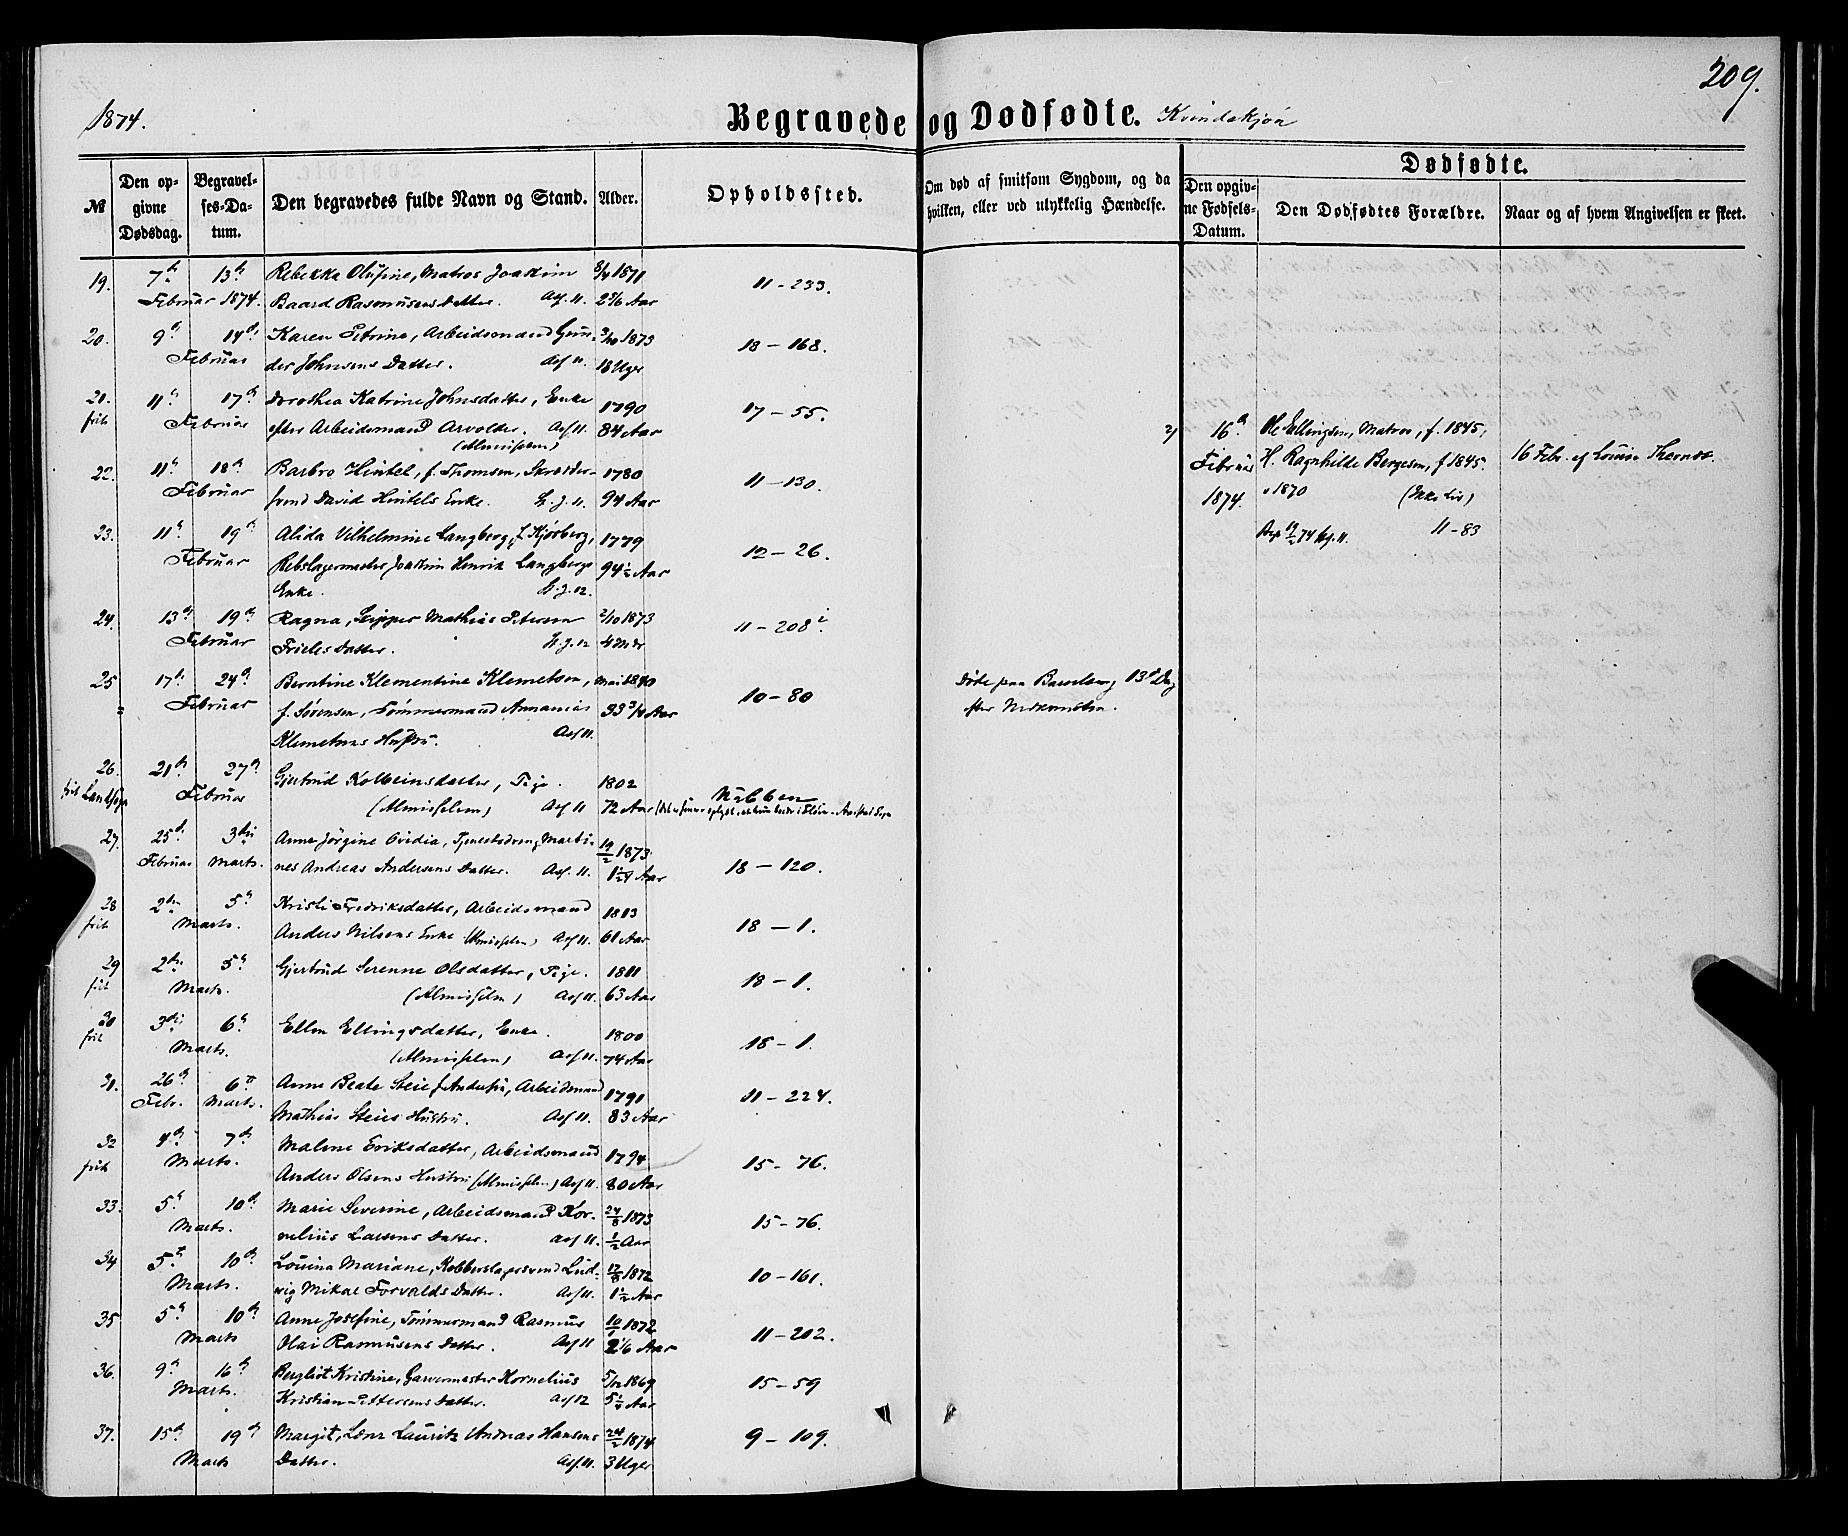 209.
1874.
Begravede og Dødfødte. Kvindekjøn
Dødfødte.
№
Den opgivne Dødsdag.
Begravelses-Datum.
Den begravedes fulde Navn og Stand.
Alder.
Opholdssted.
Om død af smitsom Sygdom, og da hvilken, eller ved ulykkelig Hændelse.
Den opgivne Fødsels-Datum.
Den Dødfødtes Forældre.
Naar og af hvem Angivelsen er skeet.
19. 7de 13de Rebekka Olufine, Matros Joakim 1871 11 - 233.
Februar 1874. Baard Rasmusens Datter. Ass. 11. 2 5/6 Aar
20. 9de 14de Karen Petrine, Arbeidsmand Gun- 3/10 1873 18 - 168.
Februar der Johnsens Datter. Ass. 11. 18 Uger
21. 11te 17de Dorothea Katrine Johnsdatter, Enke 1790 17 - 55.
frit Februar efter Arbeidsmand Arvolder. Ass. 11. 84 Aar
(Almisselem)
22. 11te 18de Barbro Hintel, f. Thomsen, 1780 11 - 130.
Februar David Hintels Enke. 94 Aar
23. 11te 19de Alida Vilhelmine Langberg, f. Kjørberg, 1779 12 - 26.
Februar Rebslagermester Joakim Henrik Langbergs 94 1/2 Aar
Enke.
24. 13de 19de Ragna, Skipper Mathias Petersen 2/10 1873 11 - 208
Februar Frieles Datter. 4 Mdr
25 17de 24de Berntine Klementine Klemetsen, Mai 1840 10 - 80
Februar f. Sørensen, Tømmermand Annanias 33 3/4 Aar
Klemetsens Hustru. Ass. 11.
Døde paa Barselseng 13de Dag
efter Nedkomsten.
26. 21de 27de Gjertrud Kolbeinsdatter, Pige. 1802
Februar (Almisselem) Ass. 11 72 Aar Nubben
27. 25de 3die Anne Jørgine Ovidia, Tjenestedreng Marti- 19/2 1873 18 - 120.
Februar Marts. nes Andreas Andersens Datter. Ass. 11. Aar
28 2den 5te Kristi Fredriksdatter, Arbeidsmand 1813 18 - 1.
frit Marts. Anders Nilsens Enke (Almisselem) Ass. 11. 61 Aar
29 2den 5te Gjertrud Serenne Olsdatter, Pige. 1811 18 - 1.
frit Marts. (Almisselem) Ass. 11. 63 Aar
30 3die 6te Ellen Ellingsdatter, Enke. 1800 18 - 1.
frit Marts. (Almisselem) Ass. 11. 74 Aar
31. 26de 6te Anne Beate Steie f. Arbeidsmand 1791 11 - 224.
Febr. Marts. Mathias Steies Hustru. Ass. 11. 83 Aar
32 4de 7de Malene Eriksdatter, Arbeidsmand 1794 15 - 76.
frit Marts. Anders Olsens Hustru (Almisselem) Ass. 11. 80 Aar
33. 5te 10de Marie Severine, Arbeidsmand Kor- 24/8 1873 15 - 76.
Marts. nelius Larsens Datter. Ass. 11. 1/2 Aar
34 5te 10de Lovina Mariane, Kobberslagersvend Lud- 1872 10 - 161.
Marts. vig Mikal Torvalds Datter. Ass. 11. 1 1/2 Aar
35 5te 10de Anne Josefine, Tømmermand Rasmus 1872 11 - 202.
Marts Olai Rasmusens Datter. Ass. 11 2 1/6 Aar
36. 9de 16de Bergliot Kristine, Garvermester Kornelius 5/12 1869 15 - 59
Marts. Kristian Pettersens Datter. Ass 12 5 1/4 Aar
37. 15de 19de Margit, Lærer Lauritz Andreas Hansens 24/2 1874 9 - 109.
Marts Datter. Ass. 11. 3 Uger
2) 16de Februar 1874.
Ole Ellingsen, Matros, f. 1845,
H. Ragnhilde Bergesen, f 1845.
v 1870 (Ikke Liv)
11 - 83
16 Febr. af Louise